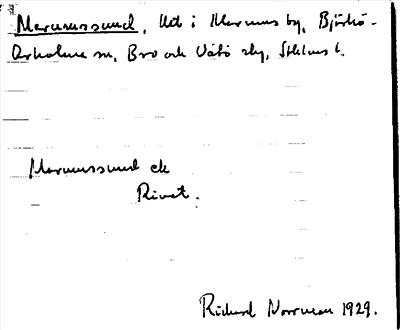 Marumssund, Utl i Marums by, Björkö-
Arholma sn, Bro och Vätö sky, Sthlms l.
Marumssund ek
Rivet.
Richard Norrman 1929.